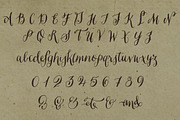 A B C D E F G H I J K L M N
O P Q R S T U V W X Y Z
abcdefghijklmnopqrstuvwxyz
0 1 2 3 4 5 6 7 8 9
& & & &
and